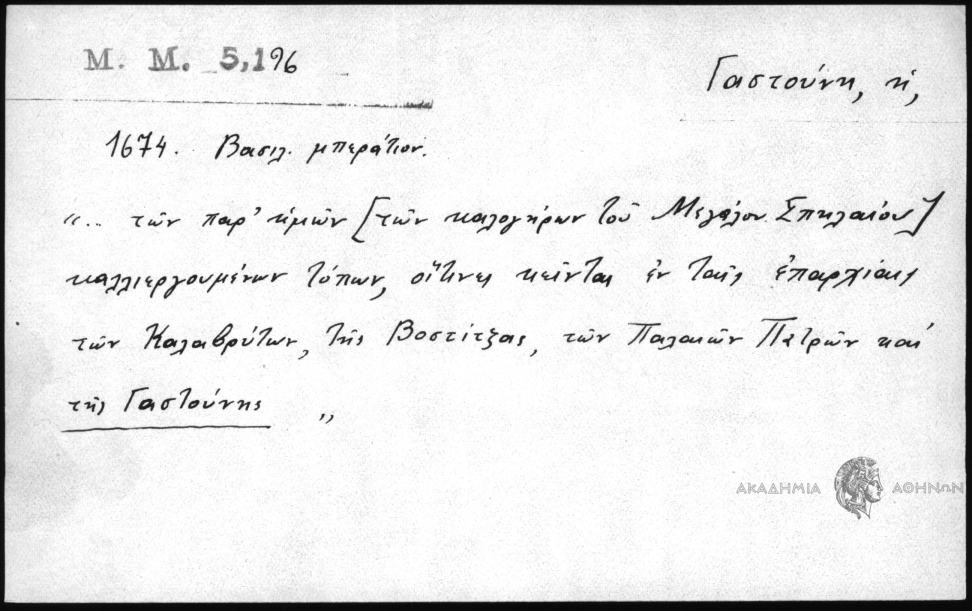 Μ. Μ. 5,196
Γαστούνη, ἡ,
1674. Βασιλ. μπεράτιον.
"... τῶν παρ' ἡμῶν [τῶν καλογήρων τοῦ Μεγάλου Σπηλαίου]
καλλιεργουμένων τόπων, οἵτινες κεῖνται ἐν ταῖς ἐπαρχίαις
τῶν Καλαβρύτων, τῆς Βοστίτζας, τῶν Παλαιῶν Πατρῶν καὶ
τῆς Γαστούνης "
ΑΚΑΔΗΜΙΑ ΑΘΗΝΩΝ